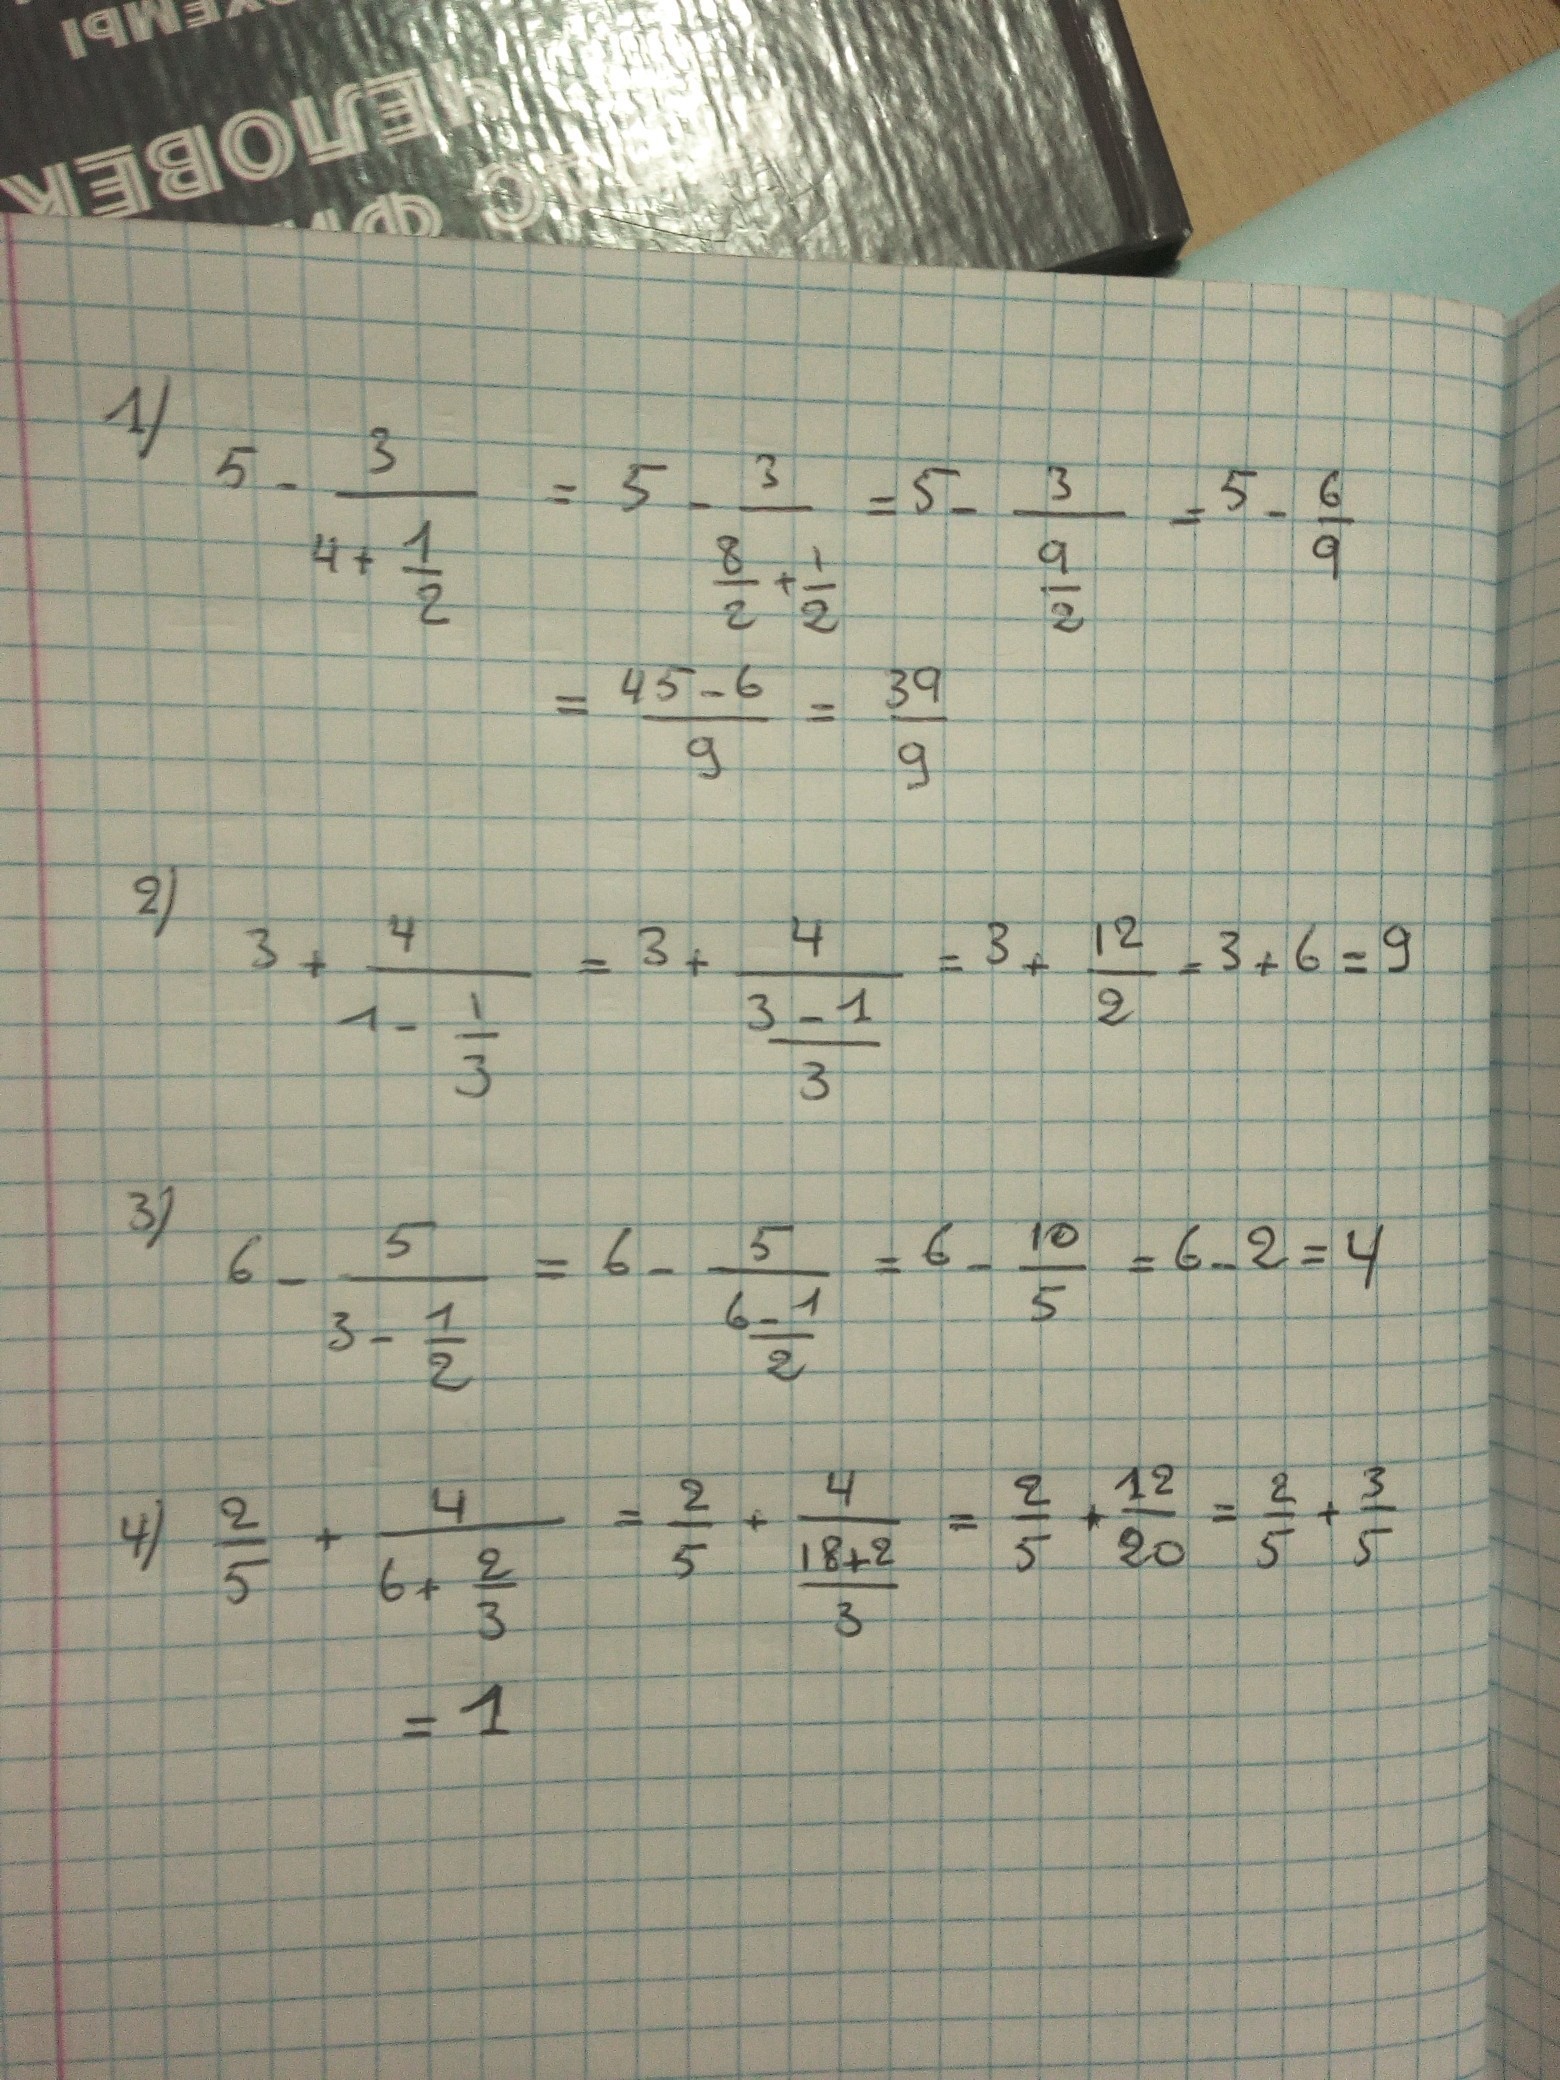 ЧЕЛОВЕК
1)
5 - 3/(4 + 1/2) = 5 - 3/(8/2 + 1/2) = 5 - 3/(9/2) = 5 - 6/9
= (45 - 6)/9 = 39/9
2)
3 + 4/(1 - 1/3) = 3 + 4/((3 - 1)/3) = 3 + 12/2 = 3 + 6 = 9
3)
6 - 5/(3 - 1/2) = 6 - 5/((6 - 1)/2) = 6 - 10/5 = 6 - 2 = 4
4) 2/5 + 4/(6 + 2/3) = 2/5 + 4/((18 + 2)/3) = 2/5 + 12/20 = 2/5 + 3/5
= 1